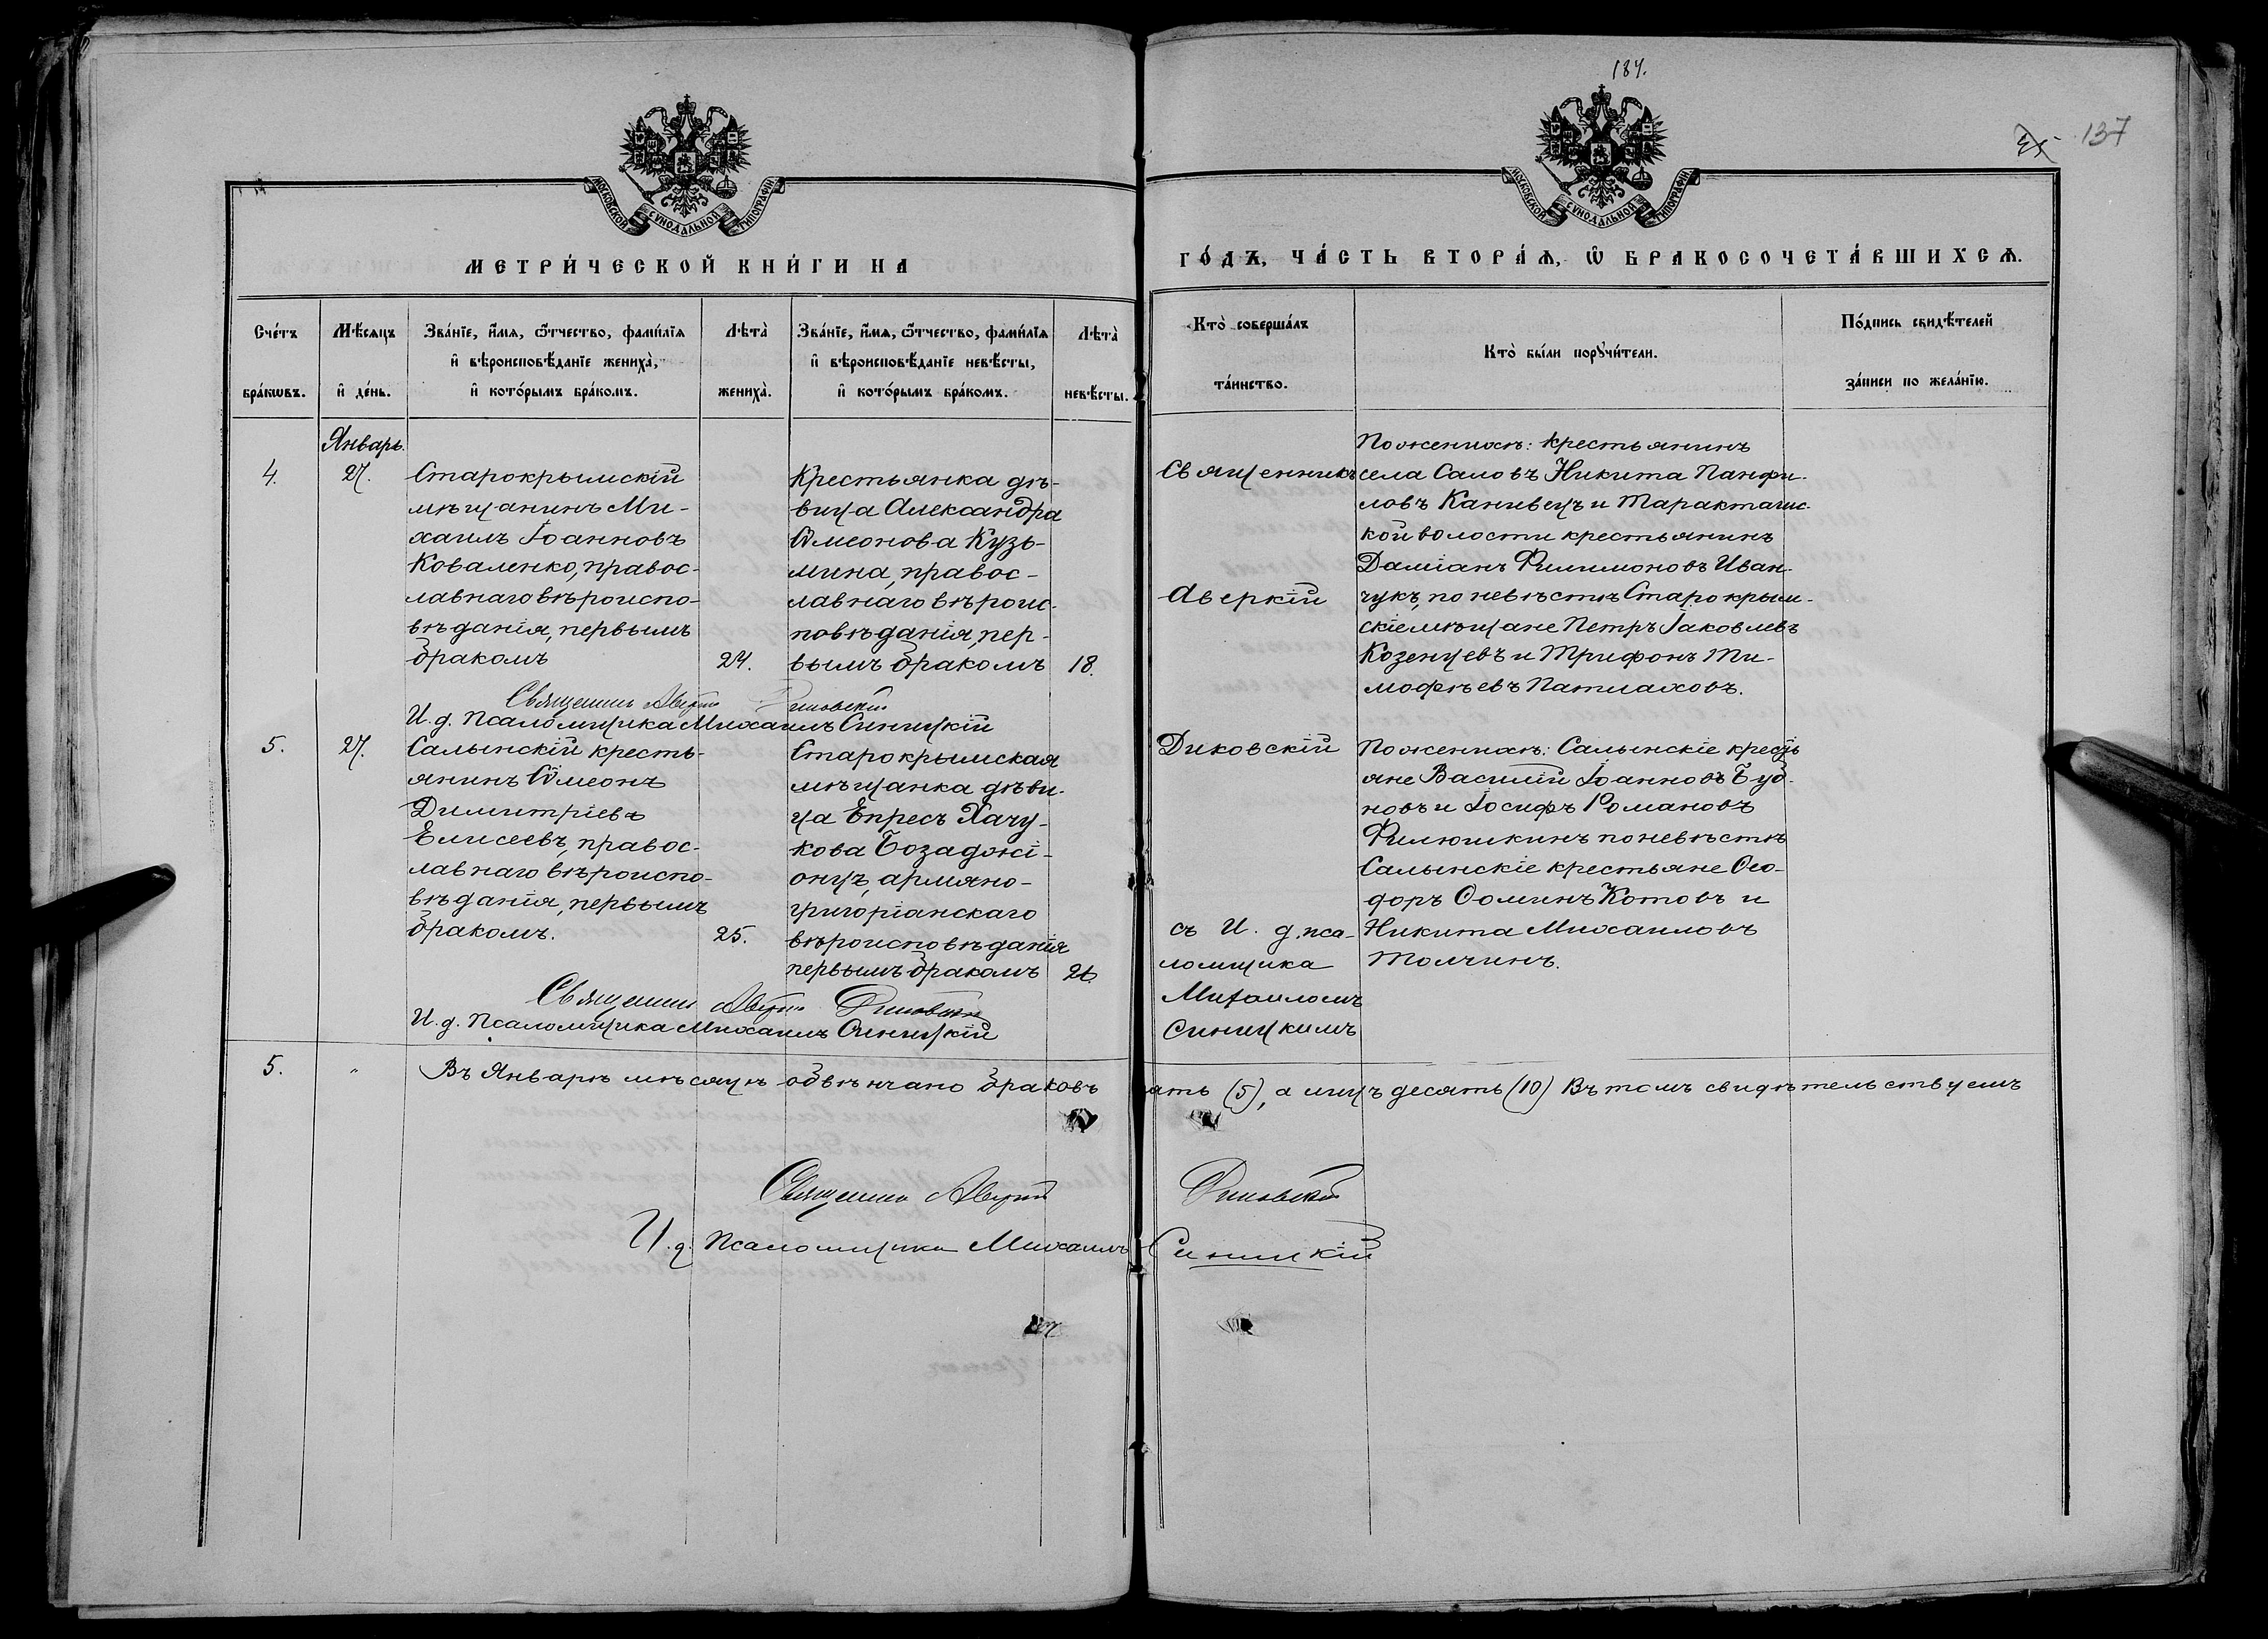 184.
137
МОСКОВСКОЙ СѴНОДАЛЬНОЙ ТИПОГРАФІИ
МОСКОВСКОЙ СѴНОДАЛЬНОЙ ТИПОГРАФІИ
МЕТРИ́ЧЕСКОЙ КНИ́ГИ НА
ГО́ДЪ, ЧА́СТЬ ВТОРА́Ѧ, Ѡ҆ БРАКОСОЧЕТА́ВШИХСѦ.
Сче́тъ бра́кѡвъ.
Мѣ́сяцъ и҆ де́нь.
Зва́нїе, и҆́мя, ѻ҆́тчество, фами́лїя
и҆ вѣроисповѣ́данїе жениха̀,
и҆ кото́рымъ бра́комъ.
Лѣта̀ жениха̀.
Зва́нїе, и҆́мя, ѻ҆́тчество, фами́лїя
и҆ вѣроисповѣ́данїе невѣ́сты,
и҆ кото́рымъ бра́комъ.
Лѣта̀ невѣ́сты.
Кто̀ соверша́лъ та́инство.
Кто̀ бы́ли порꙋчи́тели.
По́дпись свидѣ́телей за́писи по жела́нїю.
Январь.
4.
27.
Старокрымскій
мѣщанинъ Ми-
хаилъ Іоанновъ
Коваленко, правос-
лавнаго вѣроиспо-
вѣданія, первымъ
бракомъ
24.
Крестьянка дѣ-
вица Александра
Сѵмеонова Кузь-
мина, правос-
лавнаго вѣроис-
повѣданія, пер-
вымъ бракомъ
18.
Священникъ
Аверкій
По женихѣ: крестьянинъ
села Саловъ Никита Панфи-
ловъ Канивецъ и Таракташс-
кой волости крестьянинъ
Даміанъ Филимоновъ Иван-
чукъ, по невѣстѣ Старокрым-
скіе мѣщане Петръ Іаковлевъ
Козенцевъ и Трифонъ Ти-
мофѣевъ Патлаховъ.
Священникъ Аверкій Диковскій
И. д. Псаломщика Михаилъ Синицкій
5.
27.
Салынскій кресть-
янинъ Сѵмеонъ
Димитріевъ
Елисеевъ, правос-
лавнаго вѣроиспо-
вѣданія, первымъ
бракомъ.
25.
Старокрымская
мѣщанка дѣви-
ца Епресъ Хачу-
кова Бозаджі-
онцъ, армяно-
григоріанскаго
вѣроисповѣданія
первымъ бракомъ
Диковскій
съ И. д. пса-
ломщика
Михаиломъ
Синицкимъ
По женихѣ: Салынскіе кресть
яне Василій Іоанновъ Буб-
новъ и Іосифъ Романовъ
Филюшкинъ по невѣстѣ
Салынскіе крестьяне Ѳео-
доръ Ѳоминъ Котовъ и
Никита Михаиловъ
Толчинъ.
Священникъ Аверкій Диковскій
И. д. Псаломщика Михаилъ Синицкій
5. " Въ Январѣ мѣсяцѣ обвѣнчано браковъ ять (5), а лицъ десять (10) Въ томъ свидѣтельствуемъ
Священникъ Аверкій Диковскій
И. д. Псаломщика Михаилъ Синицкій